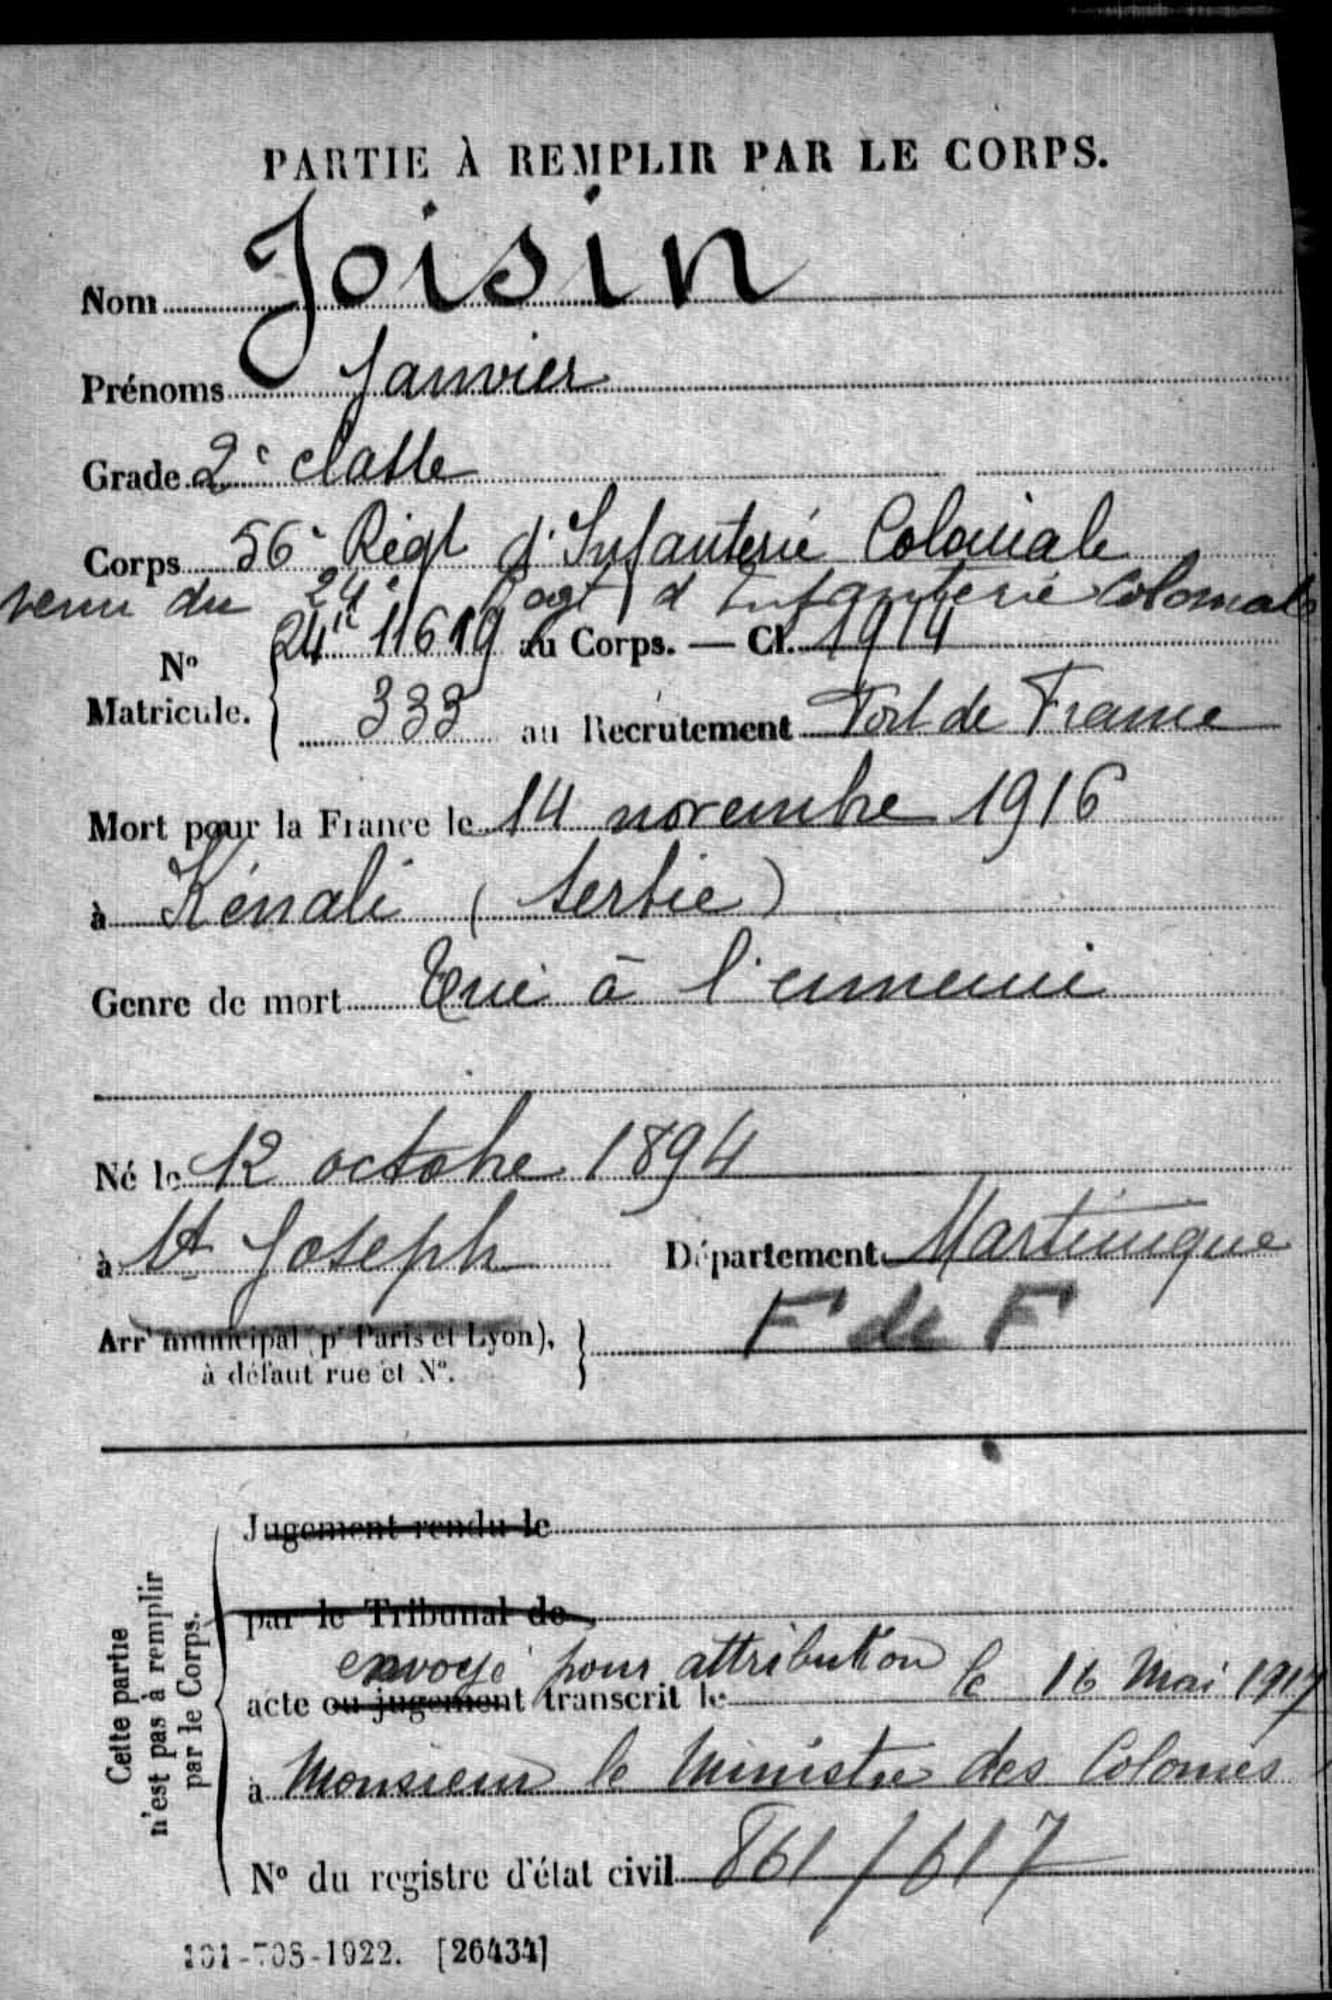 PARTIE À REMPLIR PAR LE CORPS.
Nom Joisin
Prénoms Janvier
Grade 2e classe
Corps 56e Régt d'Infanterie Coloniale
venu du 24e Rgt d'Infanterie Coloniale
No Matricule. 24ic 11619 au Corps. — Cl. 1914
333 au Recrutement Fort de France
Mort pour la France le 14 novembre 1916
à Kénali (Serbie)
Genre de mort Tué à l'ennemi
Né le 12 octobre 1894
à St Joseph Département Martinique
Arrt municipal (pr Paris et Lyon), F de F
à défaut rue et No.
Cette partie
n'est pas à remplir
par le Corps.
Jugement rendu le
par le Tribunal de
envoyé pour attribution le 16 Mai 1917
acte ou jugement transcrit le
à Monsieur le Ministre des Colonies
No du registre d'état civil 861/617
101-708-1922. [26434]